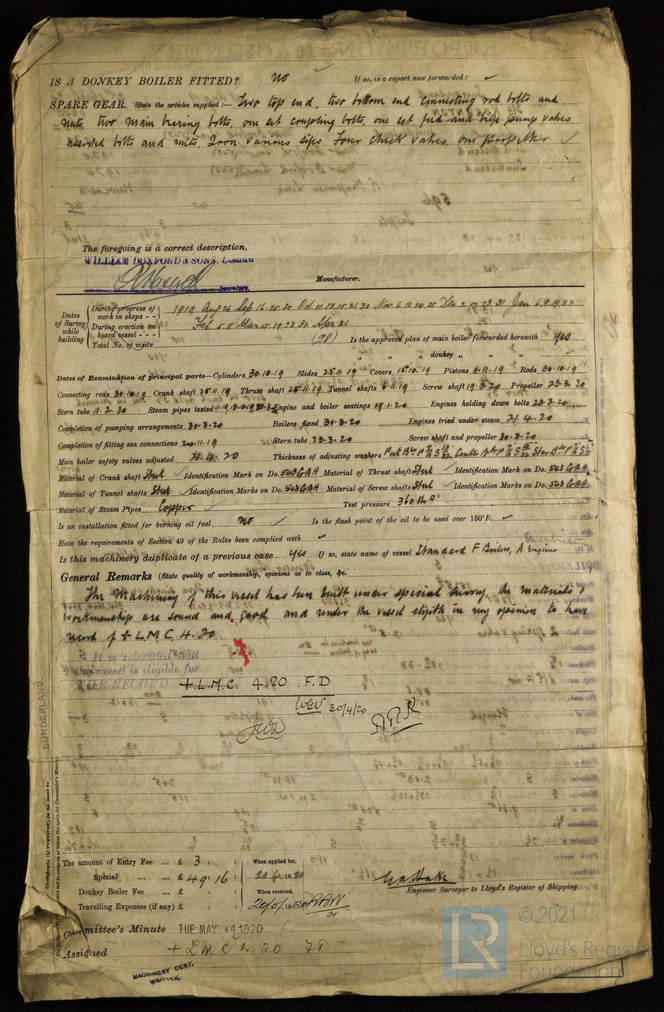 IS A DONKEY BOILER FITTED? no If so, is a report now forwarded?
SPARE GEAR. State the articles supplied:— Two top end, two bottom end connecting rod bolts and
nuts, two main bearing bolts, one set coupling bolts, one set feed and bilge pump valves
assorted bolts and nuts, Iron various sizes Four check valves, one propeller ✓
The foregoing is a correct description,
WILLIAM DOXFORD & SONS, Limited
Secretary. Manufacturer.
Dates of Survey while building
During progress of work in shops - - 1919 Aug 26 Sep 16.25.30 Oct.
During erection on board vessel - - - Feb 5.11 Mar 15.19.23.30 Apr 21
Total No. of visits (28) Is the approved plan of main boiler forwarded herewith yes
" " " donkey " " "
Dates of Examination of principal parts—Cylinders 30.10.19 Slides 25.11.19 Covers 15.10.19 Pistons 11.11.19 Rods 30.10.19
Connecting rods 30.10.19 Crank shaft 25.11.19 Thrust shaft 25.11.19 Tunnel shafts 6.11.19 Screw shaft 19.3.20 Propeller 23.3.20
Stern tube 11.2.20 Steam pipes tested Engine and boiler seatings 19.1.20 Engines holding down bolts 23.3.20
Completion of pumping arrangements 30.3.20 Boilers fixed 30.3.20 Engines tried under steam 21.4.20
Completion of fitting sea connections 24.11.19 Stern tube 23.3.20 Screw shaft and propeller 30.3.20
Main boiler safety valves adjusted 21.4.20 Thickness of adjusting washers
Material of Crank shaft Steel ✓ Identification Mark on Do. 543 GAH Material of Thrust shaft Steel ✓ Identification Mark on Do. 543 GAH
Material of Tunnel shafts Steel ✓ Identification Marks on Do. 543 GAH Material of Screw shafts Steel ✓ Identification Marks on Do. 543 GAH
Material of Steam Pipes Copper ✓ Test pressure 360 lbs
Is an installation fitted for burning oil fuel no ✓ Is the flash point of the oil to be used over 150°F. ✓
Have the requirements of Section 49 of the Rules been complied with ✓
Is this machinery duplicate of a previous case yes If so, state name of vessel Standard F Boilers, A Engines
General Remarks (State quality of workmanship, opinions as to class, &c.
The Machinery of this vessel has been built under special survey, the materials &
workmanship are sound and good and render the vessel eligible in my opinion to have
record of + LMC 4.20
It is submitted that
this vessel is eligible for
THE RECORD + L.M.C. 4.20 . F.D
30/4/20
SUNDERLAND.
The amount of Entry Fee ... £ 3 : : When applied for,
Special ... ... £ 49 : 16 : 22.4.1920
Donkey Boiler Fee ... £ : : When received,
Travelling Expenses (if any) £ : :
Engineer Surveyor to Lloyd's Register of Shipping.
Committee's Minute TUE. MAY. 4 1920
Assigned + LMC 4.20 FD
MACHINERY CERT.
WRITTEN.
LR
© 2021
Lloyd's Register
Foundation